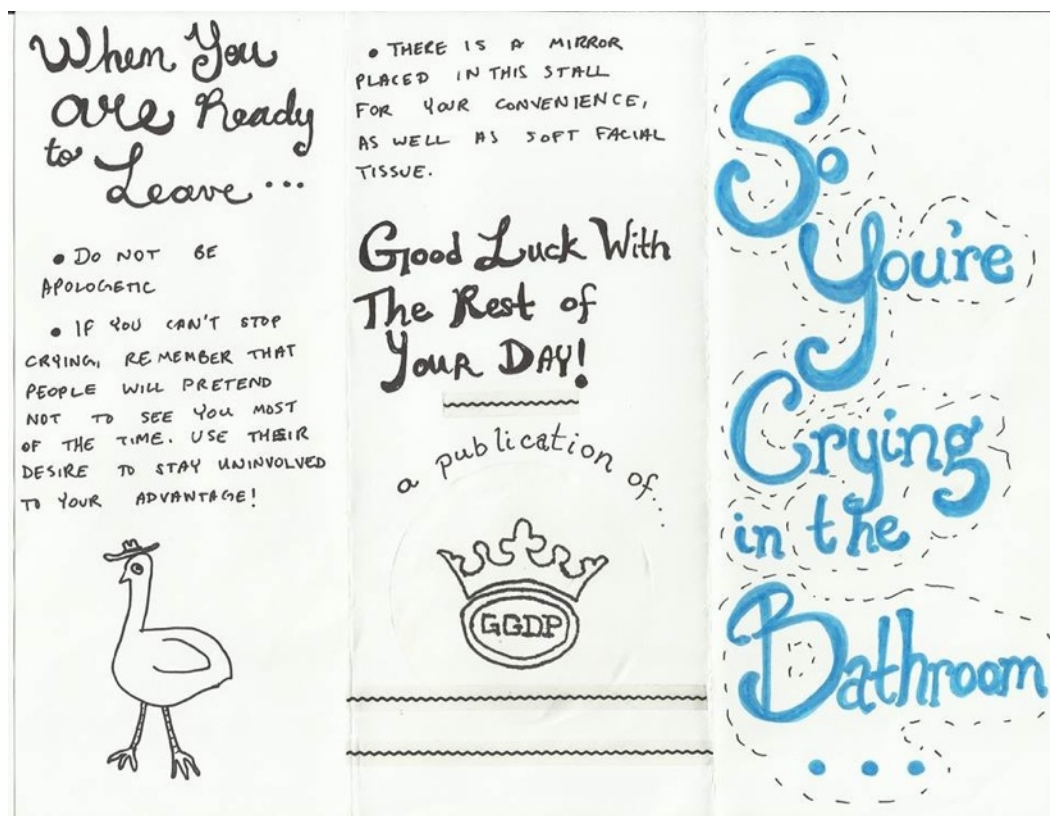 When You
are Ready
to Leave...
• DO NOT BE
APOLOGETIC
• IF YOU CAN'T STOP
CRYING, REMEMBER THAT
PEOPLE WILL PRETEND
NOT TO SEE YOU MOST
OF THE TIME. USE THEIR
DESIRE TO STAY UNINVOLVED
TO YOUR ADVANTAGE!
• THERE IS A MIRROR
PLACED IN THIS STALL
FOR YOUR CONVENIENCE,
AS WELL AS SOFT FACIAL
TISSUE.
Good Luck With
The Rest of
Your DAY!
a publication of...
GGDP
So
You're
Crying
in the
Bathroom
...